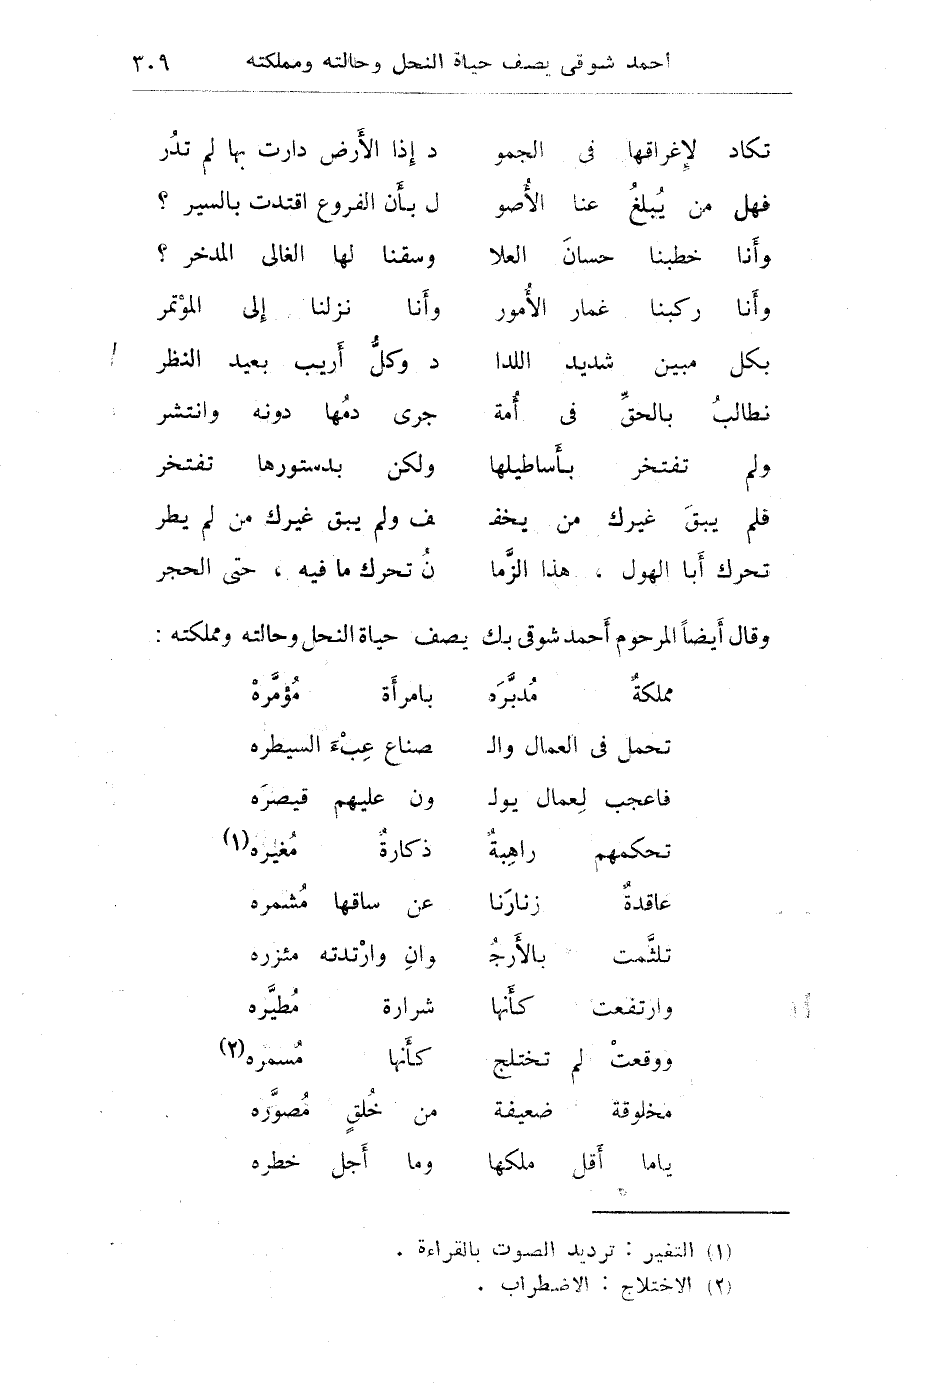 أحمد شوقى يصف حياة النحل وحالته ومملكته ٣٠٩
تكاد لإغراقها فى الجمو د إذا الأَرض دارت بها لم تدُر
فهل من يُبلغُ عنا الأُصو ل بأَن الفروع اقتدت بالسير ؟
وأَنا خطبنا حسانَ العلا وسقنا لها الغالى المدخر ؟
وأَنا ركبنا غمار الأُمور وأَنا نزلنا إلى المؤْتمر
بكل مبين شديد اللدا د وكلُّ أَريب بعيد النظر
نطالبُ بالحقِّ فى أُمة جرى دمُها دونه وانتشر
ولم تفتخر بأَساطيلها ولكن بدستورها تفتخر
فلم يبقَ غيرك من يخفـ ـف ولم يبق غيرك من لم يطر
تحرك أَبا الهول ، هذا الزَّما نُ تحرك ما فيه ، حتى الحجر
وقال أَيضاً المرحوم أَحمد شوقى بك يصف حياة النحل وحالته ومملكته :
مملكةٌ مُدبَّرَه بامرأَة مُؤمَّرهْ
تحمل فى العمال والـ صناع عِبْءَ السيطره
فاعجب لِعمال يولـ ون عليهم قيصرَه
تحكمهم راهِبةٌ ذكارةٌ مُغيره(١)
عاقدةٌ زنارَنا عن ساقها مُشمره
تلثَّمت بالأَرجُـ وانِ وارْتدته مئزره
وارتفعت كأَنها شرارة مُطيَّره
ووقعتْ لم تختلج كأَنها مُسمره(٢)
مخلوقة ضعيفة من خُلقٍ مُصوَّره
ياما أَقل ملكها وما أَجل خطره
(١) التغير : ترديد الصوت بالقراءة .
(٢) الاختلاج : الاضطراب .